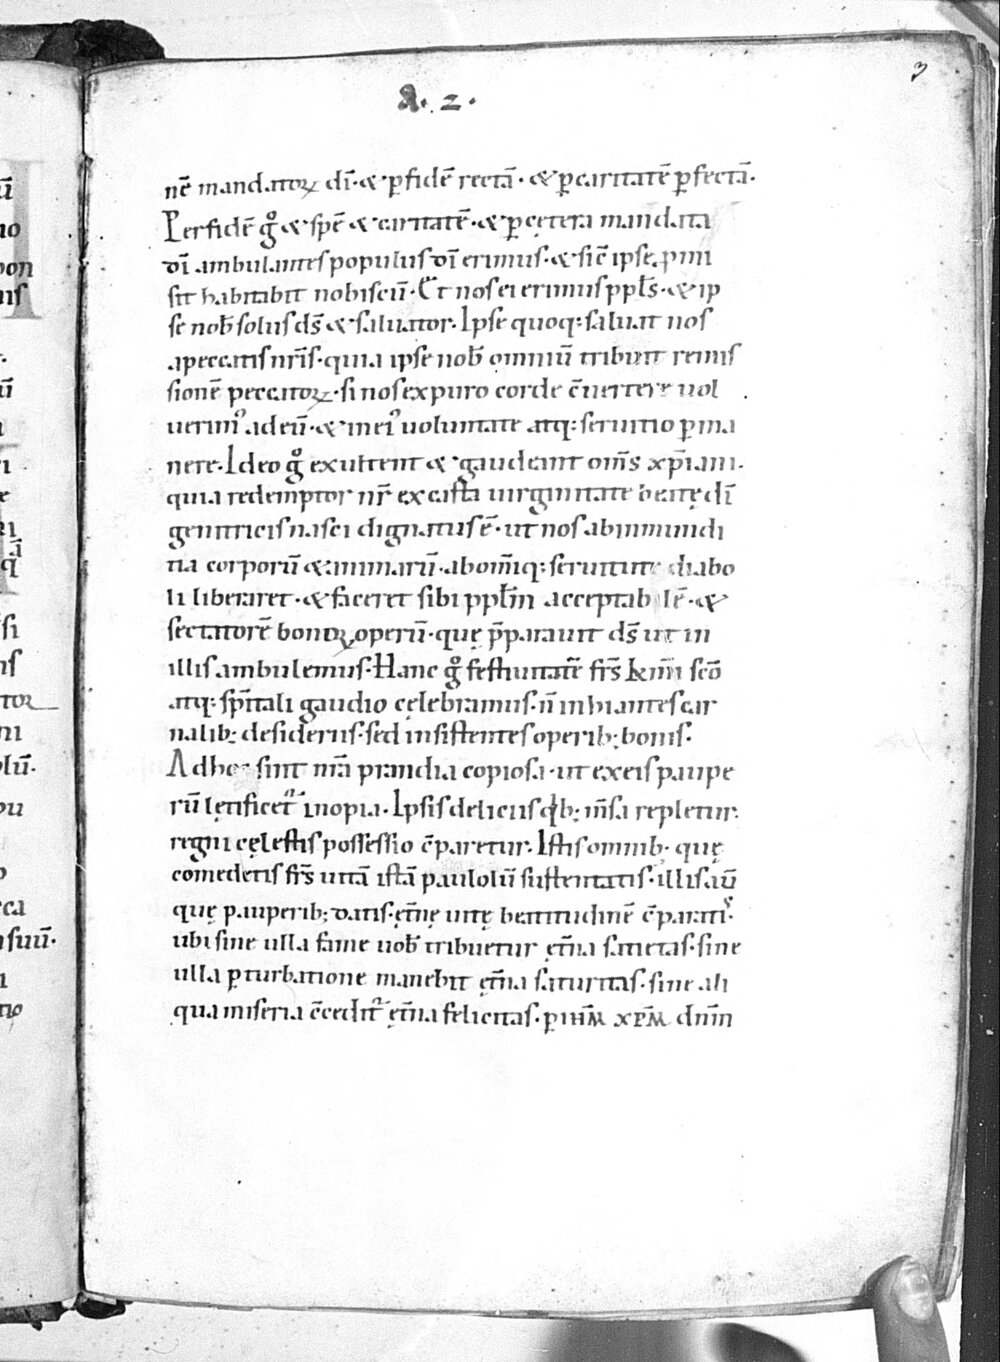 3
A. 2.
nē mandatoꝝ dī· & ꝑ fidē rectā· & ꝑ caritatē ꝑfectā·
Per fidē gͦ & spē & caritatē· & ꝑ cętera mandata
dī ambulantes populus dī erimus· & sic̄ ipse ꝓmi
sit habitabit nobiscū· Et nos ei erimus ppl̄s· & ip
se nob̄ solus ds̄ & saluator· Ipse quoq; saluat nos
a peccatis nr̄is· quia ipse nob̄ omniū tribuit remis
sionē peccatoꝝ· si nos ex puro corde c̄uertere uol
uerimꝰ ad eū· & in eiꝰ uoluntate atq; seruitio ꝑma
nere· Ideo gͦ exultent & gaudeant oms̄ xp̄iani·
quia redemptor nr̄ ex casta uirginitate beatę dī
genitricis nasci dignatus ē· ut nos ab inmundi
tia corporū & animarū· ab om̄iq; seruitute diabo
li liberaret· & faceret sibi ppl̄m acceptabilē· &
sectatorē bonoꝝ operū· quę p̄parauit ds̄ ut in
illis ambulemus· Hanc gͦ festiuitatē frs̄ km̄i sc̄o
atq; sp̄itali gaudio celebramus· n̄ inhiantes car
nalib; desideriis· sed insistentes operib; bonis·
Ad hoc sint nr̄a prandia copiosa· ut ex eis paupe
rū lętificet᷑ inopia· Ipsis deliciis qͥb; m̄sa repletur·
regni cęlestis possessio c̄paretur· Istis omnib· quę
comedetis frs̄ uitā istā paulolū sustentatis· illis aū
quę pauperib; datis· ęt̄nę uitę beatitudinē c̄paratiꝰ·
ubi sine ulla fame uob̄ tribuetur ęt̄na satietas· sine
ulla ꝑturbatione manebit ęt̄na saturitas· sine ali
qua miseria c̄cedit᷑ ęt̄na felicitas· ꝑ ihm̄ xpm̄ dnm̄